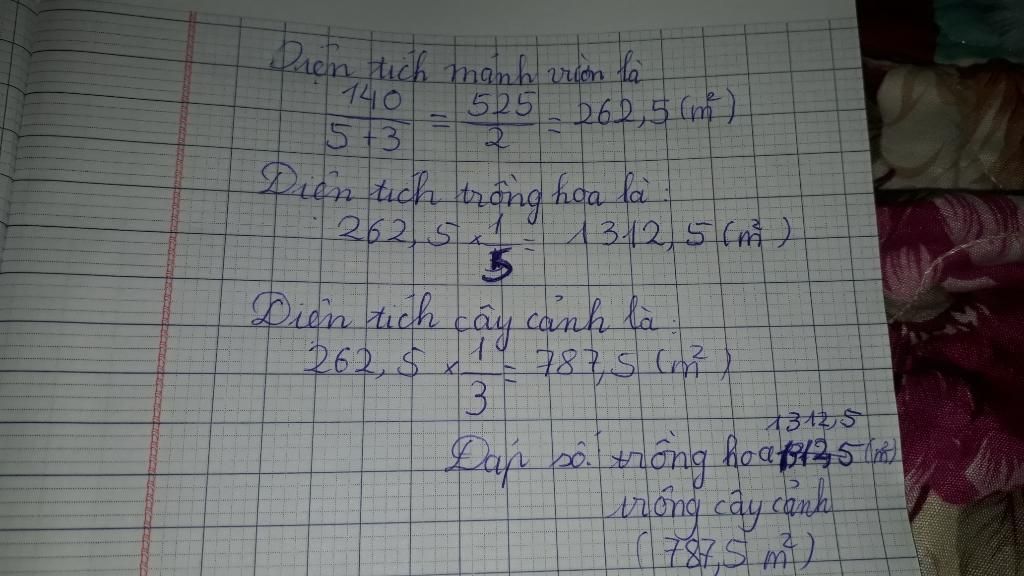 Diện tích mảnh vườn là
140/5+3 = 525/2 = 262,5 (m²)
Diện tích trồng hoa là:
262,5 × 1/5 = 1312,5 (m²)
Diện tích cây cảnh là:
262,5 × 1/3 = 787,5 (m²)
1312,5
Đáp số: trồng hoa (m²)
trồng cây cảnh
(787,5 m²)